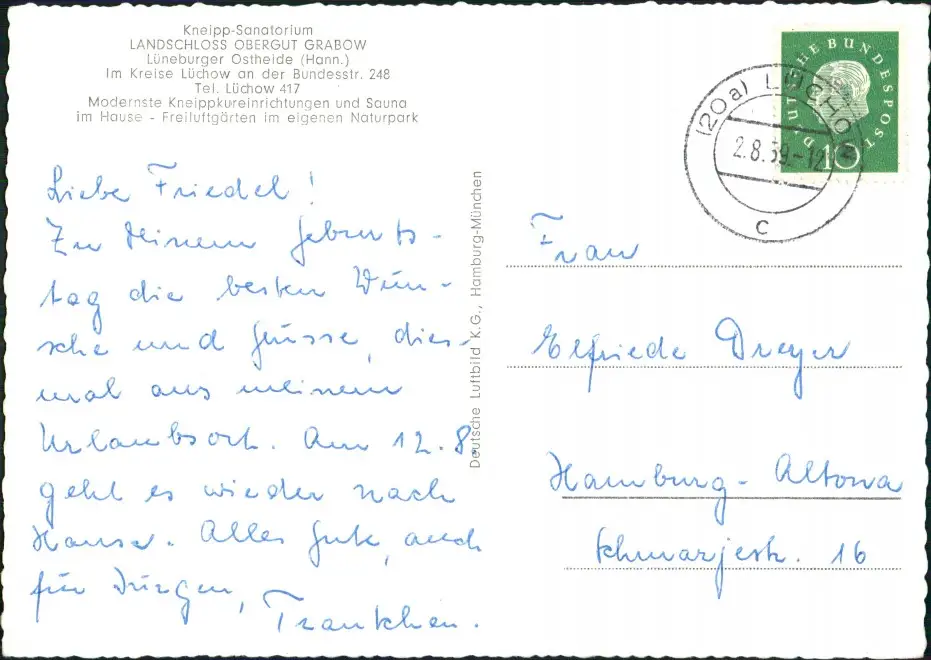 Kneipp-Sanatorium
LANDSCHLOSS OBERGUT GRABOW
Lüneburger Ostheide (Hann.)
Im Kreise Lüchow an der Bundesstr. 248
Tel. Lüchow 417
Modernste Kneippkureinrichtungen und Sauna
im Hause - Freiluftgärten im eigenen Naturpark
DEUTSCHE BUNDESPOST
10
(20a) LÜCHOW
2.8.59.-12
c
Liebe Friedel!
Zu Deinem Geburts-
tag die besten Wün-
sche und Grüsse, dies-
mal aus meinem
Urlaubsort. Am 12.8.
geht es wieder nach
Hause. Alles Gute, auch
für Jürgen,
Trautchen.
Deutsche Luftbild K.G., Hamburg-München
Frau
Elfriede Dreyer
Hamburg-Altona
Schnarjestr. 16